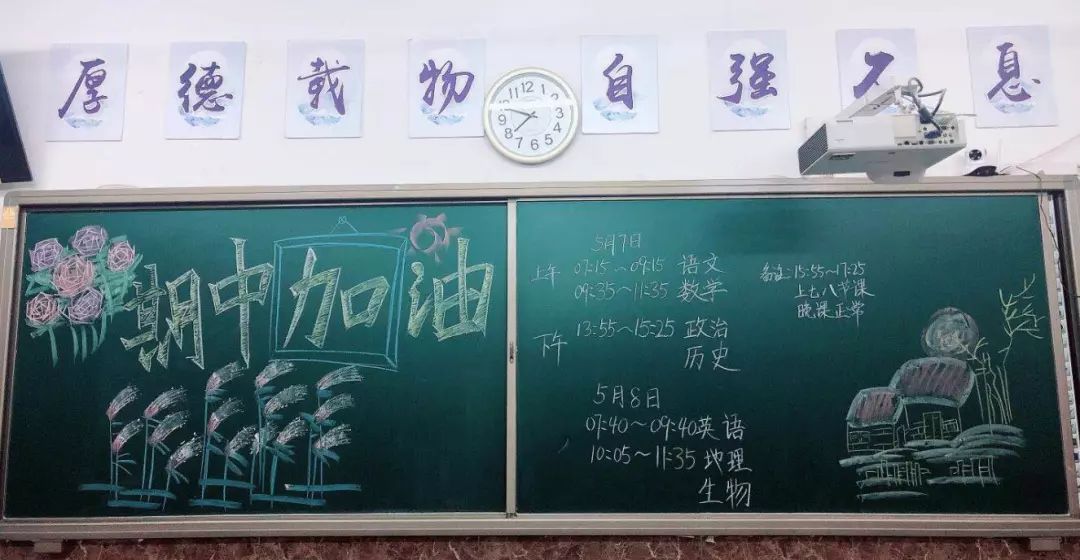 厚德载物自强不息
12
1
2
3
4
5
6
7
8
9
10
11
期中加油
5月7日
上午 07:15~09:15 语文
09:35~11:35 数学
下午 13:55~15:25 政治
历史
5月8日
07:40~09:40英语
10:05~11:35 地理
生物
备注:15:55~17:25
上七八节课
晚课正常